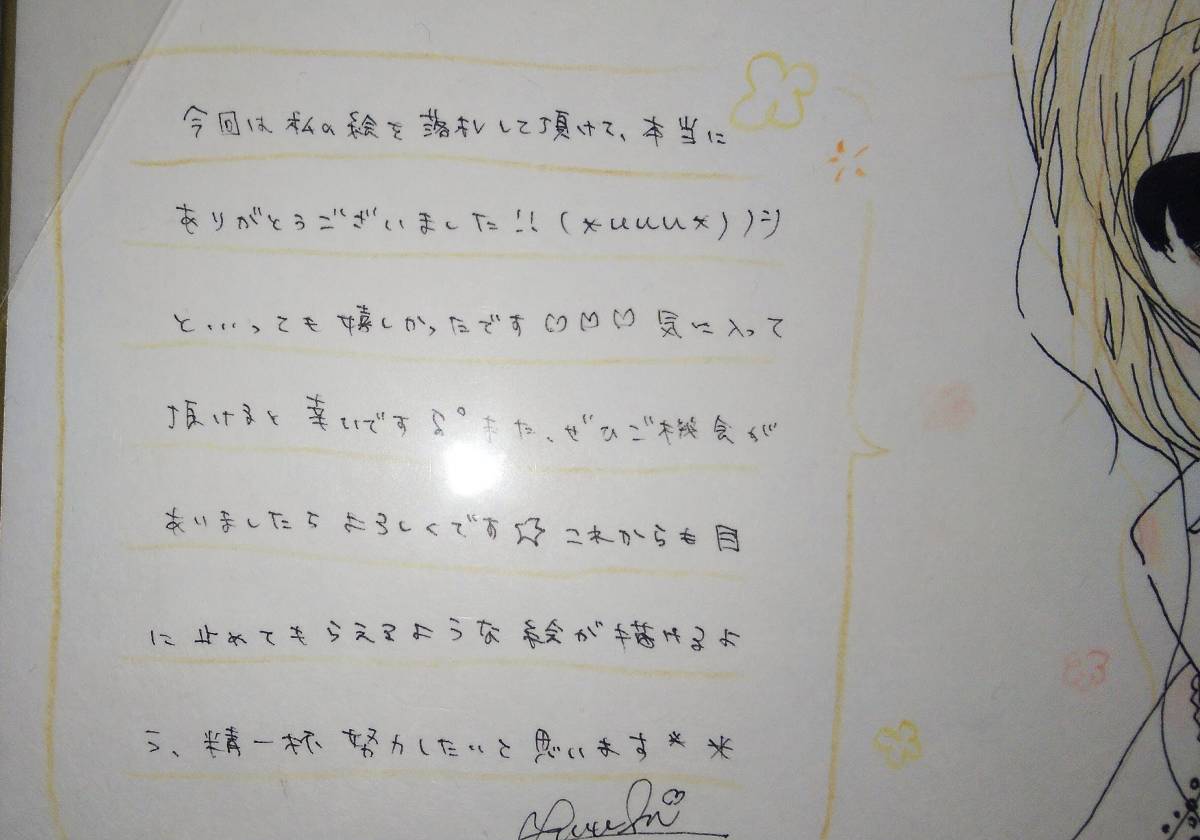 今回は私の絵を落札して頂けて、本当に
ありがとうございました!!(*uuu*))ﾆ)
と…っても嬉しかったです♡♡♡気に入って
頂けると幸いです♪°また、ぜひご機会が
ありましたらよろしくです☆これからも目
に止めてもらえるような絵が描けるよ
う、精一杯努力したいと思います**